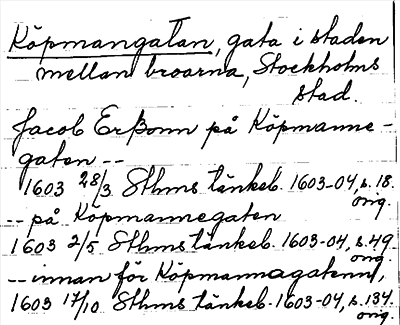 Köpmangatan, gata i staden
mellan broarna, Stockholms
stad.
Jacob Erßonn på Köpmanne-
gaten --
1603 28/3 Sthms tänkeb. 1603-04, s. 18.
orig.
-- på Köpmannegaten
1603 2/5 Sthms tänkeb. 1603-04, s. 49.
orig.
-- innan för Köpmannagatenn,
1603 17/10 Sthms tänkeb. 1603-04, s. 134.
orig.